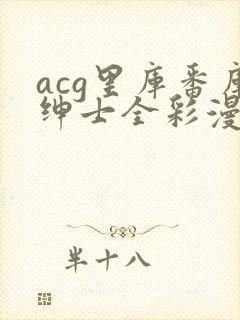 acg里库番库
绅士全彩漫
半十八